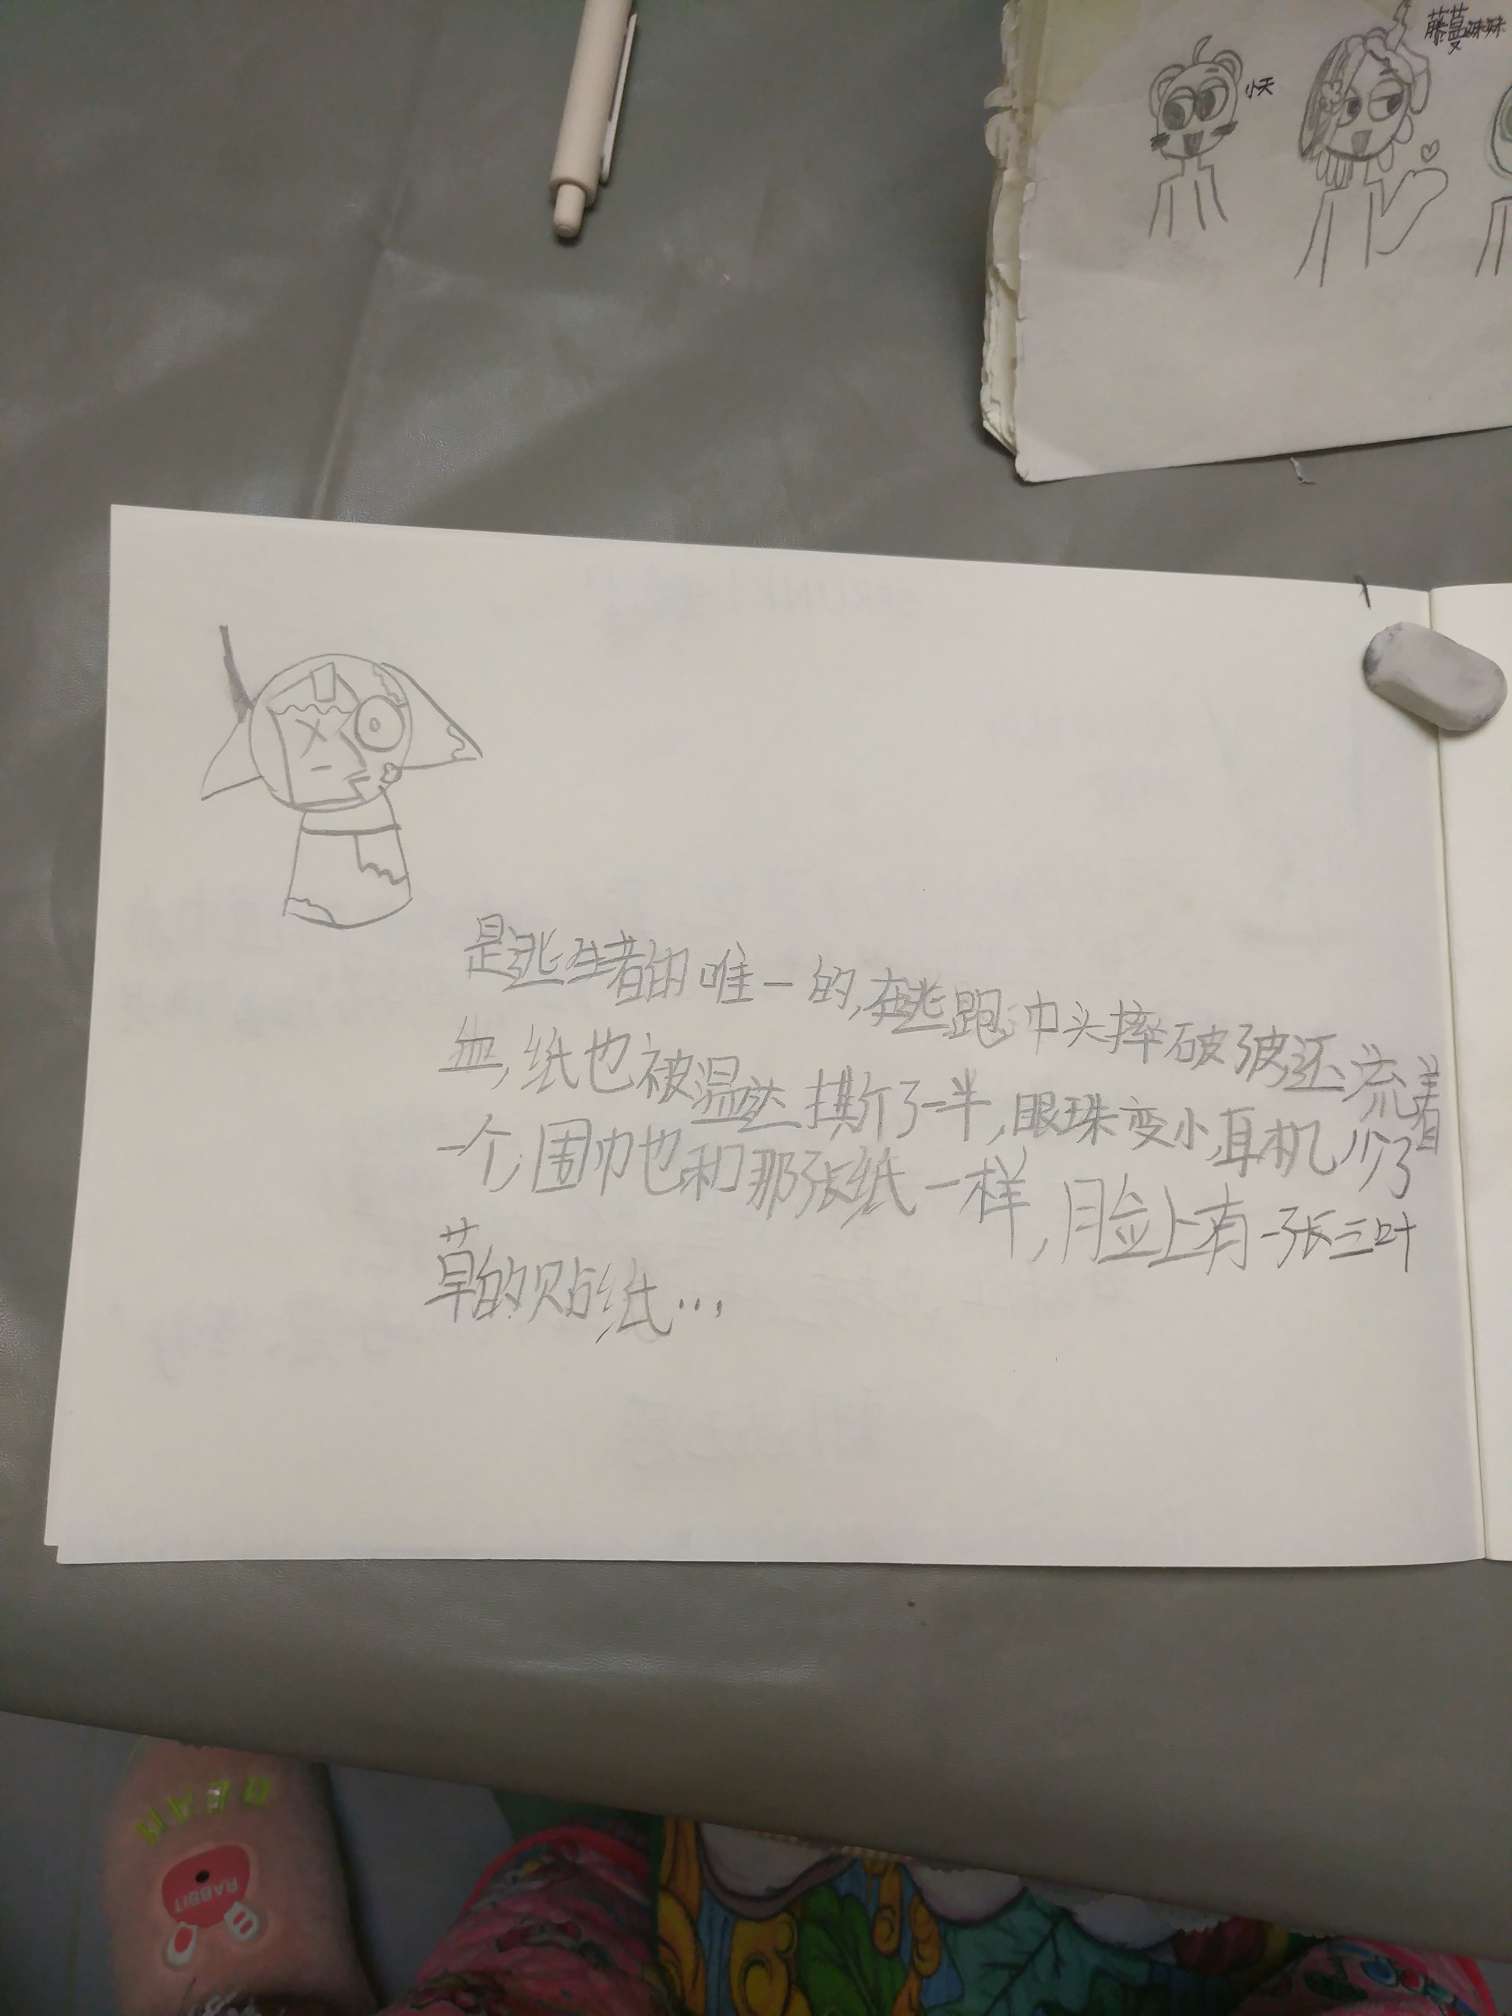 小天
藤蔓妹妹
是逃生者的唯一的,在逃跑中头摔破皮还流着
血,纸也被温达撕了一半,眼珠变小,耳机少了
一个,围巾也和那张纸一样,脸上有一张三叶
草的贴纸…
RABBIT